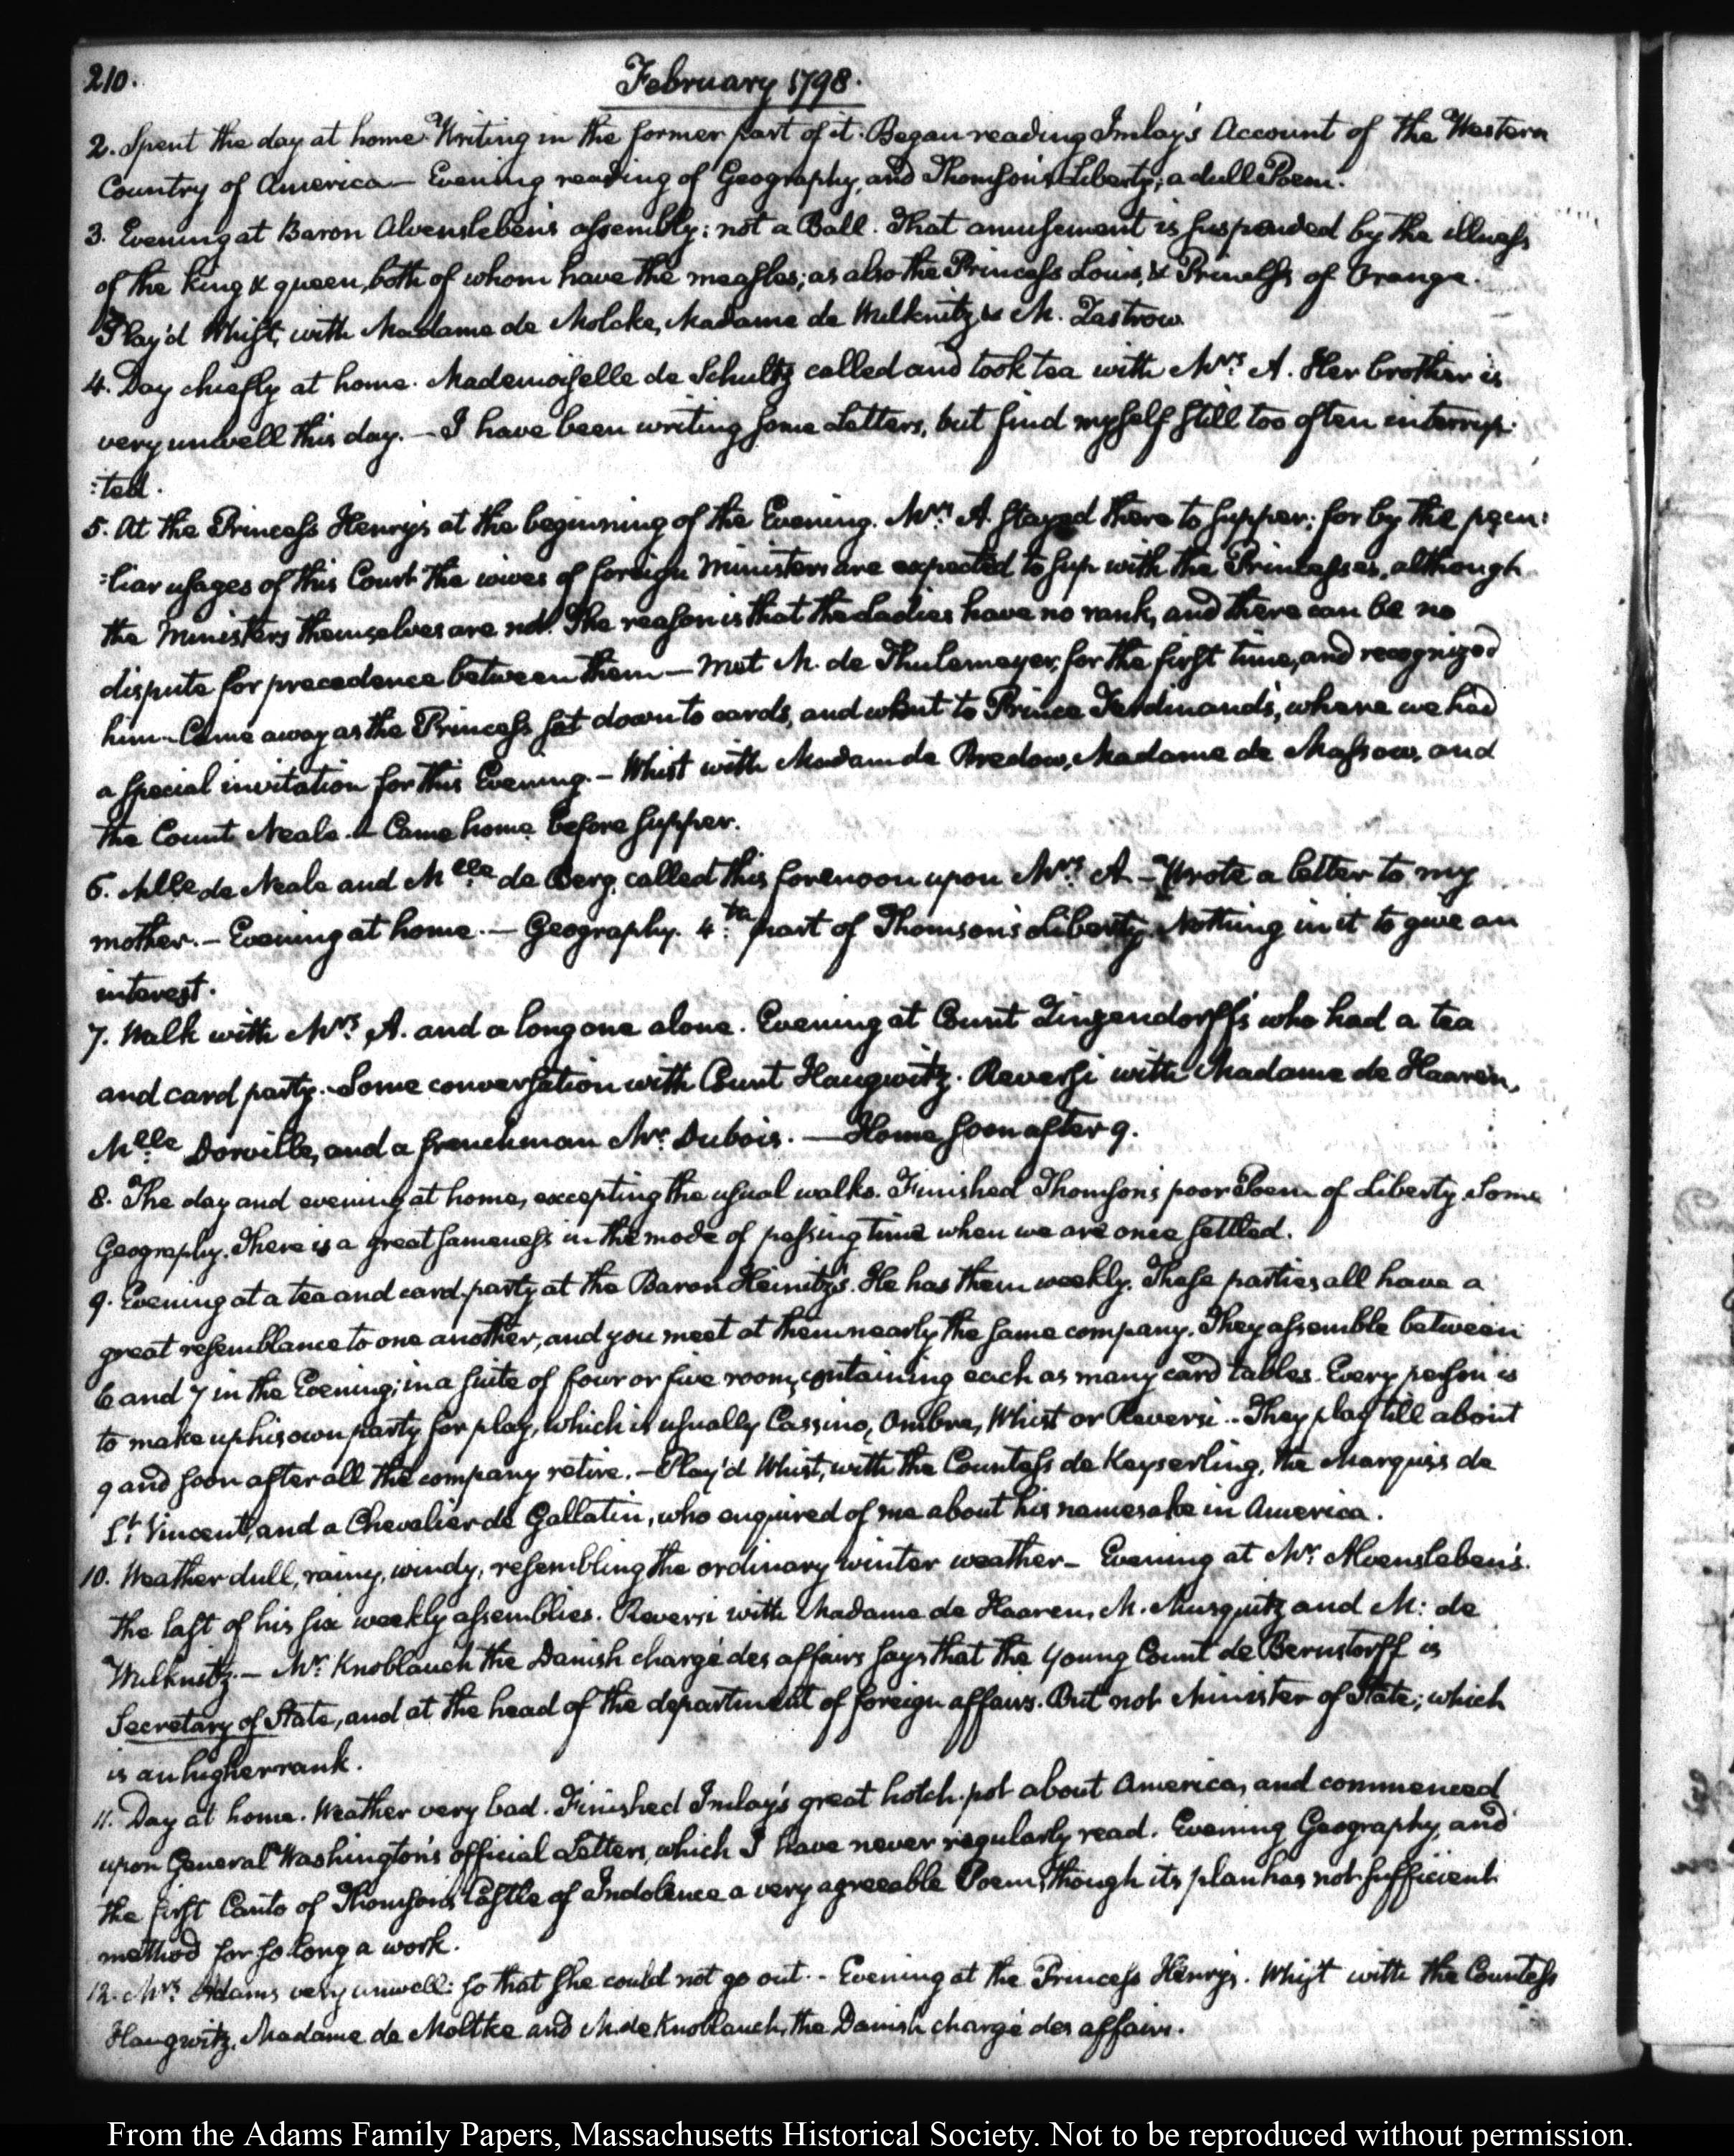 210.
February 1798.
2. Spent the day at home. Writing in the former part of it. Began reading Imlay's Account of the Western
Country of America— Evening reading of Geography, and Thomson's Liberty; a dull Poem.
3. Evening at Baron Alvensleben's assembly: not a Ball. That amusement is suspended by the illness
of the King & queen, both of whom have the measles; as also the Princess Louis, & Princess of Orange.
Play'd Whist, with Madame de Molcke, Madame de Wilknitz & M. Zastrow.
4. Day chiefly at home. Mademoiselle de Schultz called and took tea with Mrs. A. Her brother is
very unwell this day. — I have been writing some Letters, but find myself still too often interrup:
:ted.
5. At the Princess Henry's at the beginning of the Evening. Mrs. A. stayed there to supper; for by the pecu:
:liar usages of this Court the wives of foreign Ministers are expected to sup with the Princesses, although
the Ministers themselves are not. The reason is that the Ladies have no rank, and there can be no
dispute for precedence between them — Met M. de Thulemeyer, for the first time, and recognized
him. Came away as the Princess sat down to cards, and went to Prince Ferdinand's, where we had
a special invitation for this Evening. — Whist with Madam de Bredow, Madame de Massow, and
the Count Neale. — Came home before supper.
6. Mlle de Neale and Melle de Berg, called this forenoon upon Mrs. A — Wrote a letter to my
mother. — Evening at home. — Geography. 4th. part of Thomson's Liberty. Nothing in it to give an
interest.
7. Walk with Mrs. A. and a long one alone. Evening at Count Zinzendorff's who had a tea
and card party. Some conversation with Count Haugwitz. Reversi with Madame de Haaren,
Melle Dorville, and a frenchman Mr. Dubois. — Home soon after 9.
8. The day and evening at home, excepting the usual walks. Finished Thomson's poor Poem of Liberty. Some
Geography. There is a great sameness in the mode of passing time when we are once settled.
9. Evening at a tea and card-party at the Baron Heinitz's. He has them weekly. These parties all have a
great resemblance to one another, and you meet at them nearly the same company. They assemble between
6 and 7 in the Evening; in a suite of four or five rooms, containing each as many card tables. Every person is
to make up his own party for play, which is usually Cassino, Ombre, Whist or Reversi.. They play till about
9 and soon after all the company retire. — Play'd Whist, with the Countess de Keyserling, the Marquis de
St. Vincent, and a Chevalier de Gallatin, who enquired of me about his namesake in America.
10. Weather dull, rainy, windy, resembling the ordinary winter weather — Evening at Mr. Alvensleben's.
the last of his six weekly assemblies. Reversi with Madame de Haaren, M. Musquitz and M: de
Wilknitz. — Mr. Knoblauch the Danish chargé des affairs says that the young Count de Bernstorff is
Secretary of State, and at the head of the department of foreign affairs. But not Minister of State; which
is an higher rank.
11. Day at home. Weather very bad. Finished Imlay's great hotch-pot about America, and commenced
upon General Washington's official Letters, which I have never regularly read. Evening Geography, and
the first Canto of Thomson's Castle of Indolence a very agreeable Poem, though its plan has not sufficient
method for so long a work.
12. Mrs. Adams very unwell: so that she could not go out. - Evening at the Princess Henry's. Whist with the Countess
Haugwitz, Madame de Moltke and M. de Knoblauch, the Danish chargé des affairs.
From the Adams Family Papers, Massachusetts Historical Society. Not to be reproduced without permission.